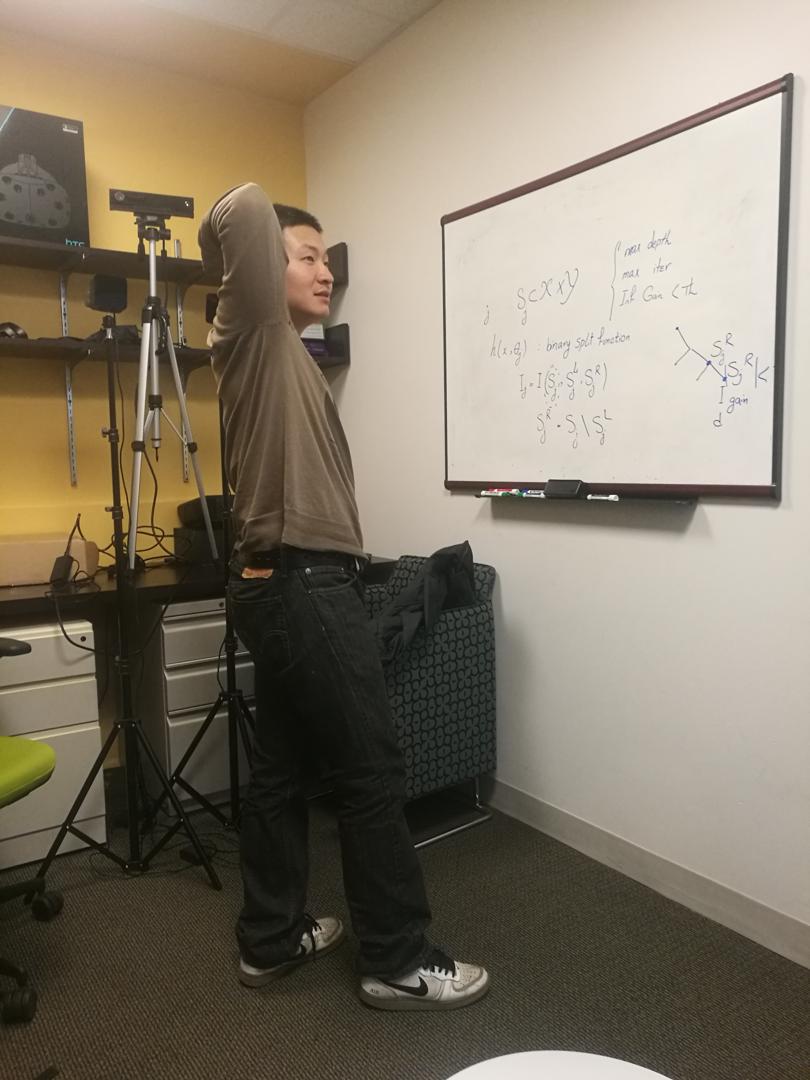 hTC
j S_j ⊂ X × Y
max depth
max iter
Inf Gan < Th
h(x, θ_j) : binary split function
I_j = I(S_j, S_j^L, S_j^R)
S_j^R = S_j \ S_j^L
S_j^R
S_j^R | <
I gain
d
AIR